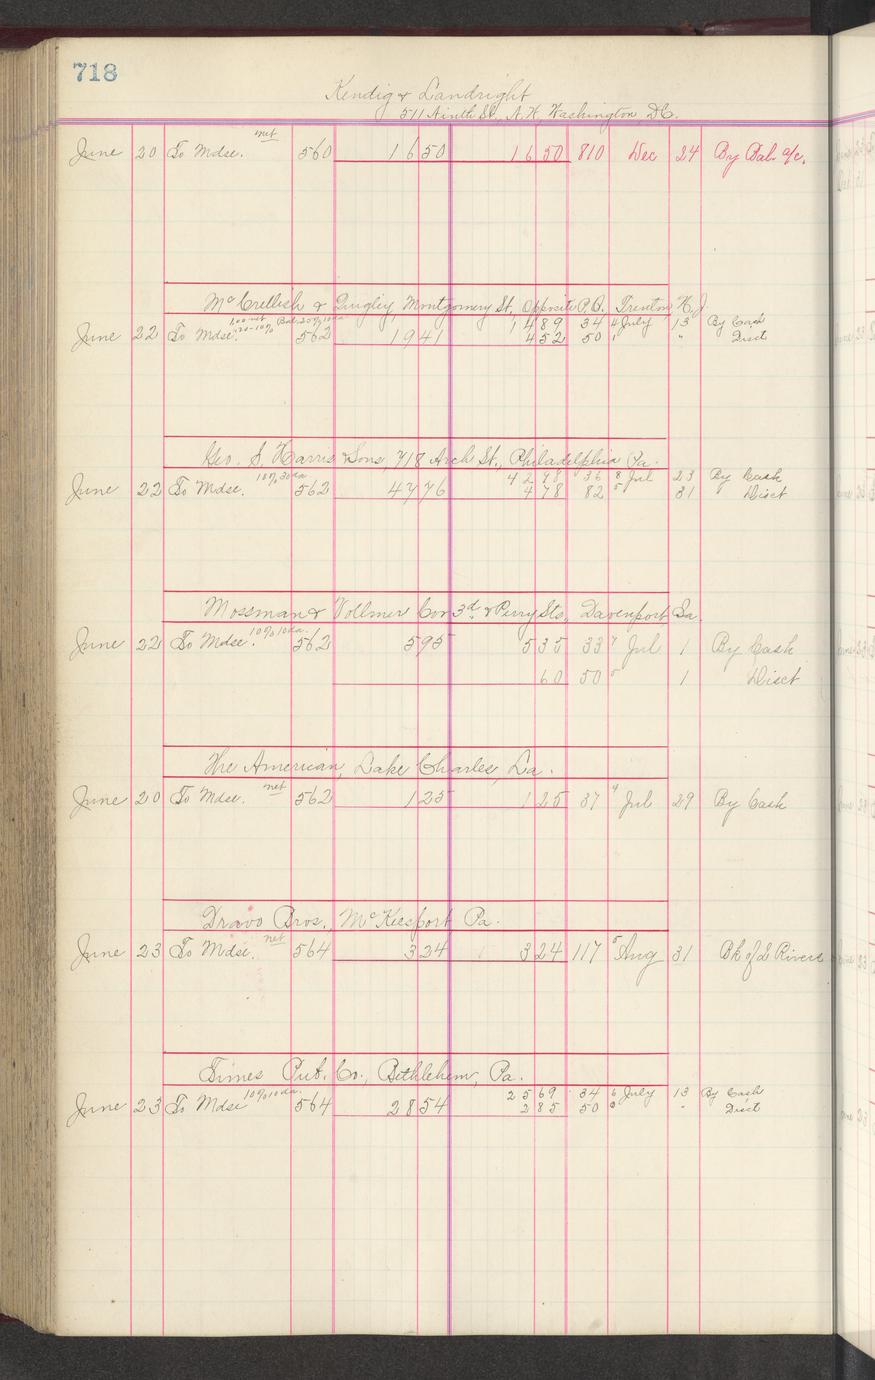 718
Kendig & Landright
511 Ninth St., N.W. Washington, D.C.
net
June 20 To Mdse. 560 16 50 16 50 810 Dec 24 By Bal. a/c.
McCrellish & Quigley Montgomery St. Opposite P.O. Trenton N.J.
14 89 34 4 July 13 By Cash
June 22 To Mdse. 562 19 41 4 52 50 " " Disct
Geo. S. Harris & Sons, 718 Arch St., Philadelphia Pa.
10% 30 da 42 98 36 8 Jul 23 By Cash
June 22 To Mdse. 562 47 76 4 78 82 5 31 Disct
Mossman & Vollmer Cor 3d. & Perry Sts, Davenport Ia.
10% 10 da.
June 22 To Mdse. 562 5 95 5 35 33 7 Jul 1 By Cash
60 50 5 1 Disct
The American, Lake Charles, La.
net
June 20 To Mdse. 562 1 25 1 25 37 4 Jul 29 By Cash
Dravo Bros., McKeesport Pa.
net
June 23 To Mdse. 564 3 24 3 24 117 5 Aug 31 Bk of
Times Pub. Co., Bethlehem, Pa.
10% 10 da. 25 69 34 6 July 13 By Cash
June 23 To Mdse 564 28 54 2 85 50 " Disct